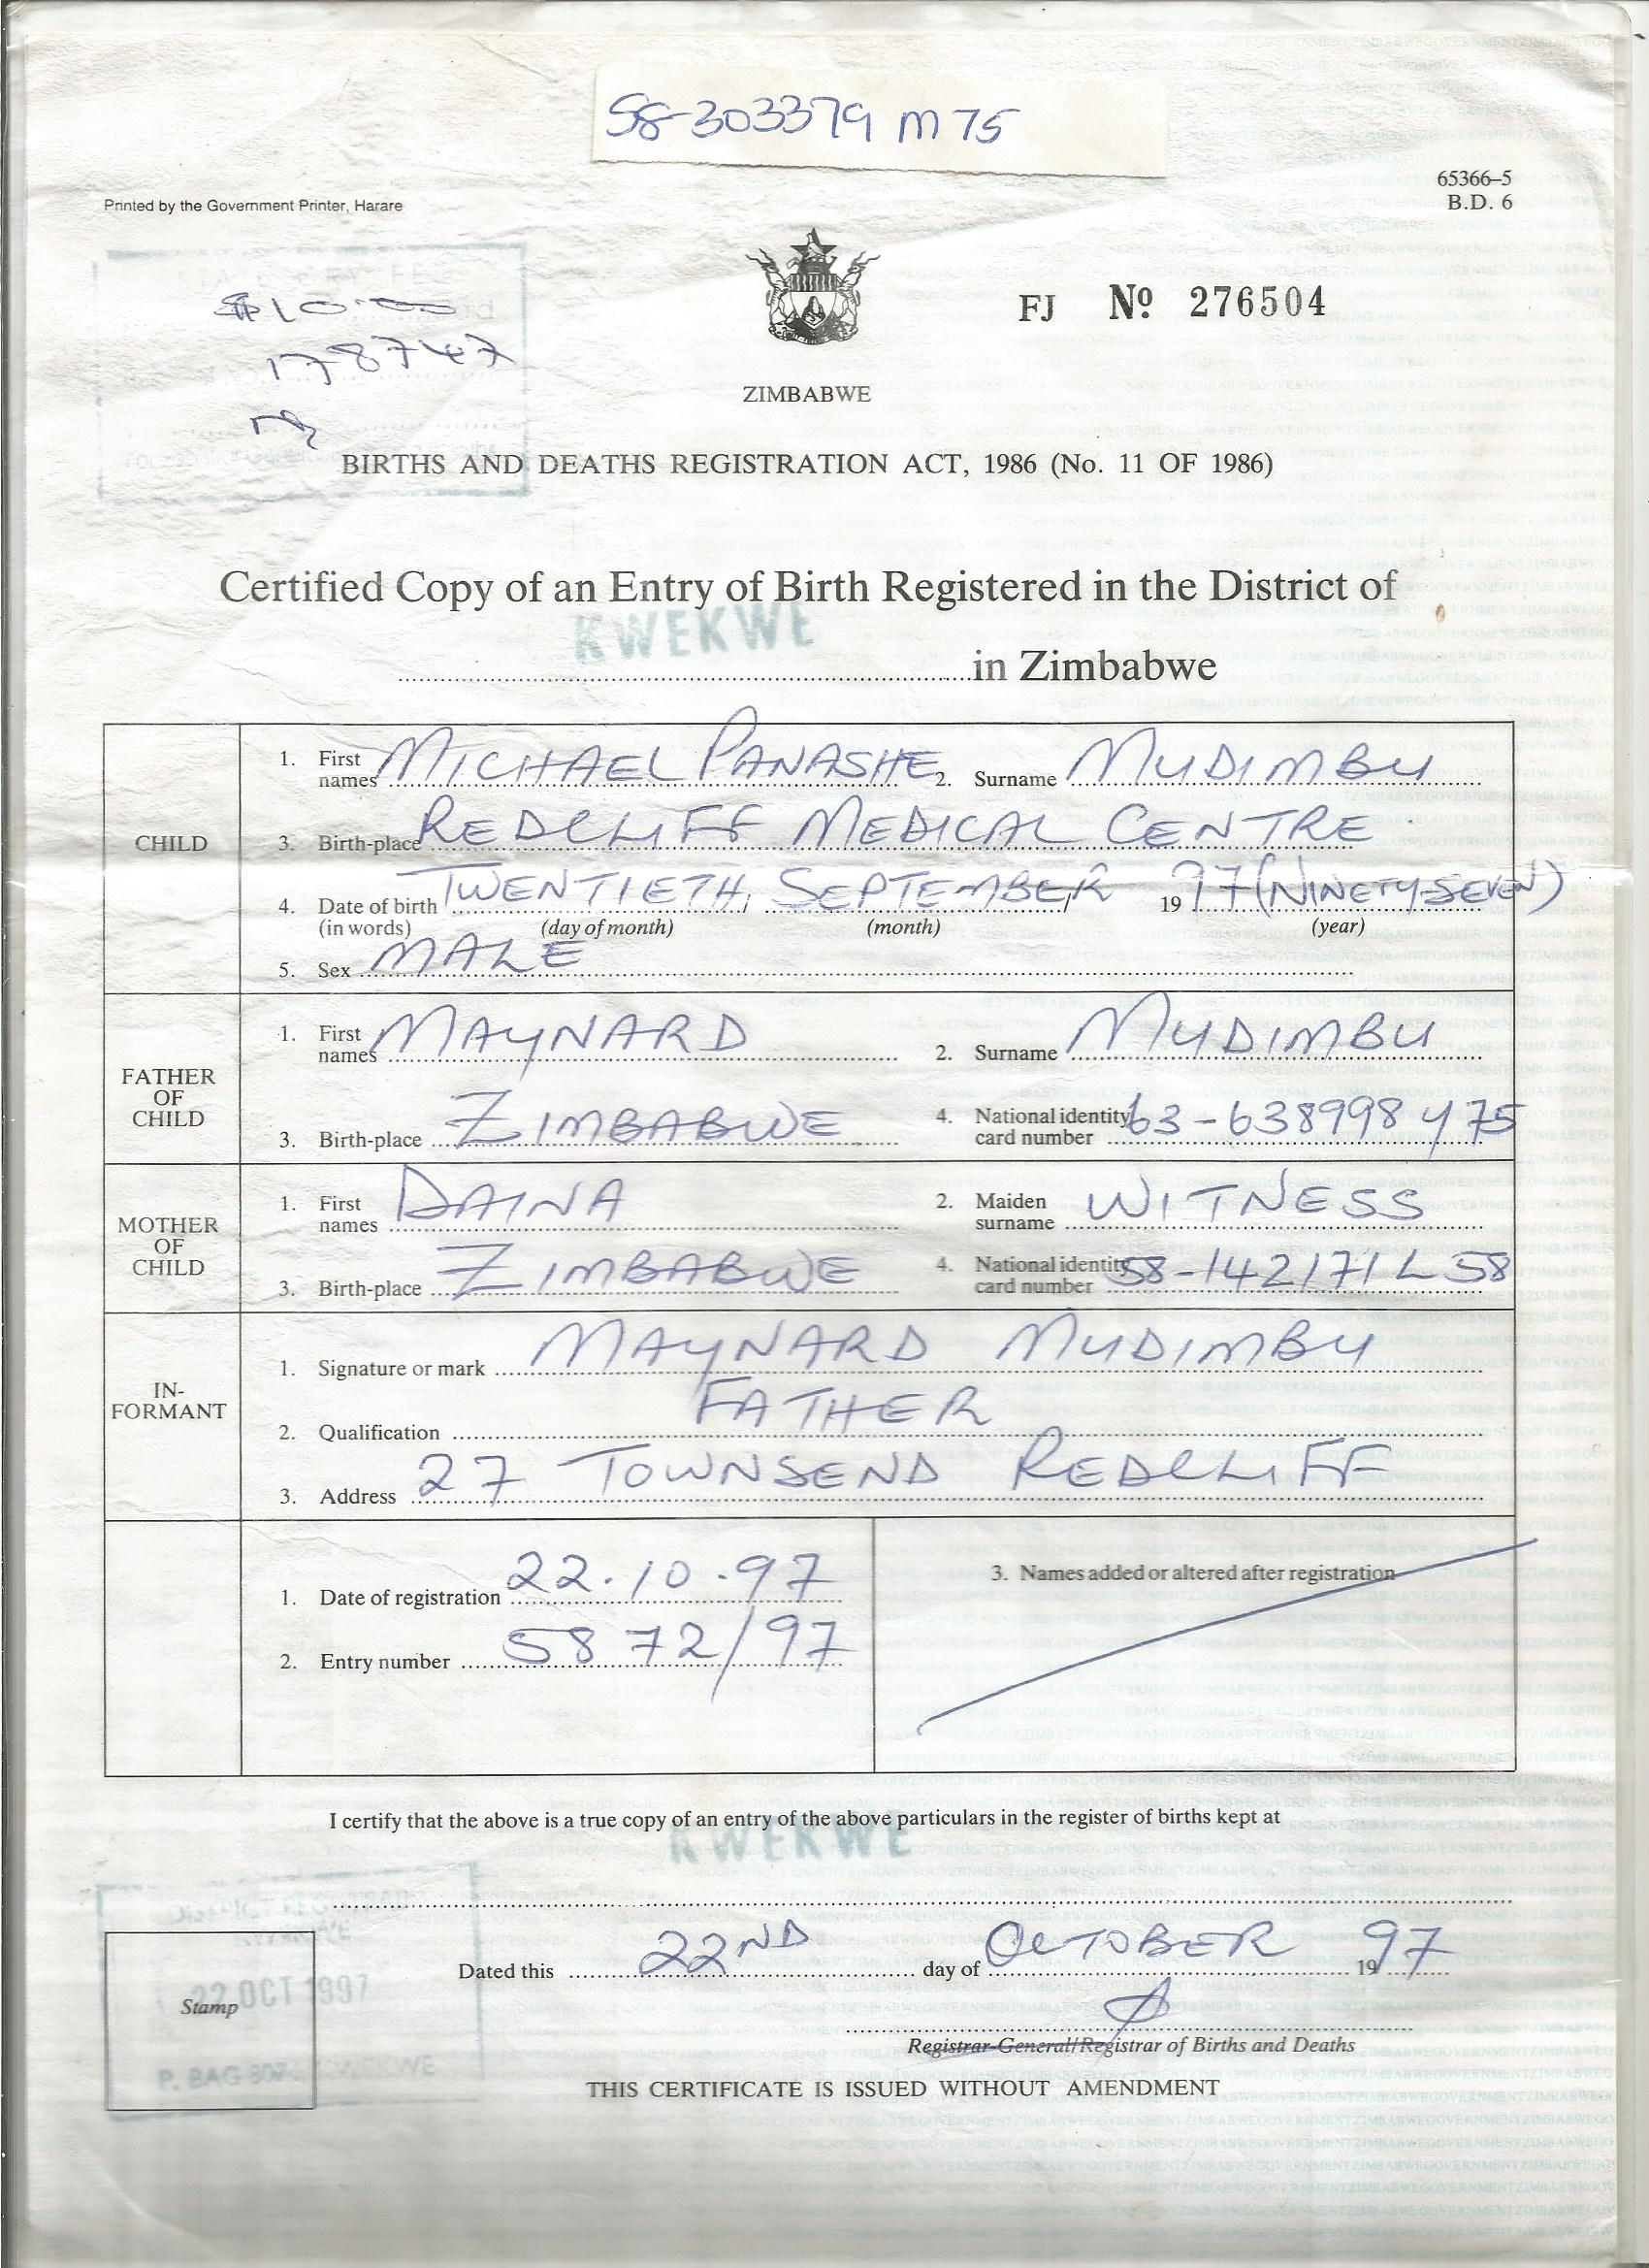 58-303379 M 75
65366–5
Printed by the Government Printer, Harare
B.D. 6
$10.00
FJ No 276504
178747
ZIMBABWE
BIRTHS AND DEATHS REGISTRATION ACT, 1986 (No. 11 OF 1986)
Certified Copy of an Entry of Birth Registered in the District of
KWEKWE
in Zimbabwe
CHILD
1. First names MICHAEL PANASHE 2. Surname MUDIMBU
3. Birth-place REDCLIFF MEDICAL CENTRE
4. Date of birth TWENTIETH SEPTEMBER 1997 (NINETY-SEVEN)
(in words) (day of month) (month) (year)
5. Sex MALE
FATHER OF CHILD
1. First names MAYNARD 2. Surname MUDIMBU
3. Birth-place ZIMBABWE 4. National identity card number 63-638998 Y 75
MOTHER OF CHILD
1. First names DAINA 2. Maiden surname WITNESS
3. Birth-place ZIMBABWE 4. National identity card number 58-142171 L 58
IN-FORMANT
1. Signature or mark MAYNARD MUDIMBU
2. Qualification FATHER
3. Address 27 TOWNSEND REDCLIFF
1. Date of registration 22.10.97
2. Entry number 5872/97
3. Names added or altered after registration
I certify that the above is a true copy of an entry of the above particulars in the register of births kept at
KWEKWE
DISTRICT REGISTRAR
Dated this 22ND day of OCTOBER 1997
22 OCT 1997
Stamp
Registrar-General/Registrar of Births and Deaths
P. BAG 807 KWEKWE
THIS CERTIFICATE IS ISSUED WITHOUT AMENDMENT